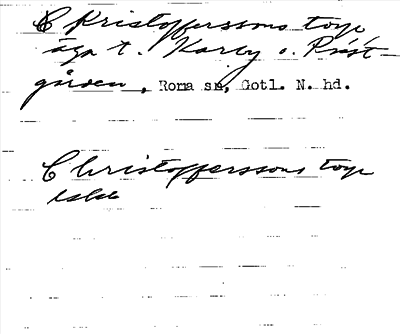 C Kristofferssons torp
äga t. Karby o. Präst-
gården, Roma sn, Gotl. N. hd.
Christofferssons torp